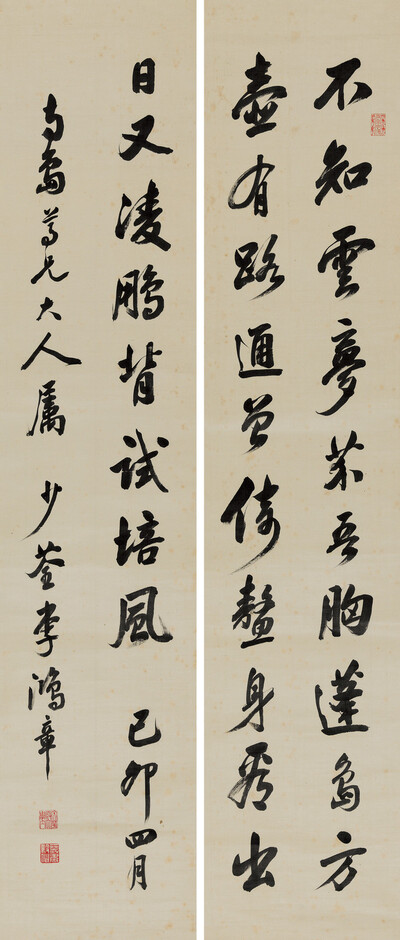 不知雲夢芥吾胸蓬島方
壺有路通曾倚鼇身看出
日又凌鵬背試培風 己卯四月
尊兄大人屬 少荃李鴻章